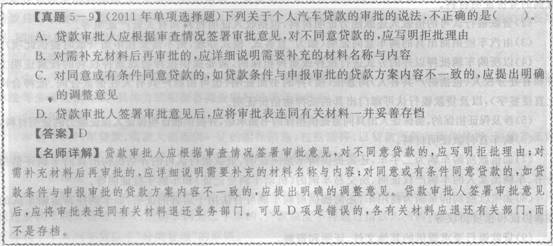 【真题 5-9】(2011 年单项选择题)下列关于个人汽车贷款的审批的说法,不正确的是(    )。
A. 贷款审批人应根据审查情况签署审批意见,对不同意贷款的,应写明拒批理由
B. 对需补充材料后再审批的,应详细说明需要补充的材料名称与内容
C. 对同意或有条件同意贷款的,如贷款条件与申报审批的贷款方案内容不一致的,应提出明确
的调整意见
D. 贷款审批人签署审批意见后,应将审批表连同有关材料一并妥善存档
【答案】D
【名师详解】贷款审批人应根据审查情况签署审批意见,对不同意贷款的,应写明拒批理由;对
需补充材料后再审批的,应详细说明需要补充的材料名称与内容;对同意或有条件同意贷款的,如贷
款条件与申报审批的贷款方案内容不一致的,应提出明确的调整意见。贷款审批人签署审批意见
后,应将审批表连同有关材料退还业务部门。可见 D 项是错误的,各有关材料应退还有关部门,而
不是存档。